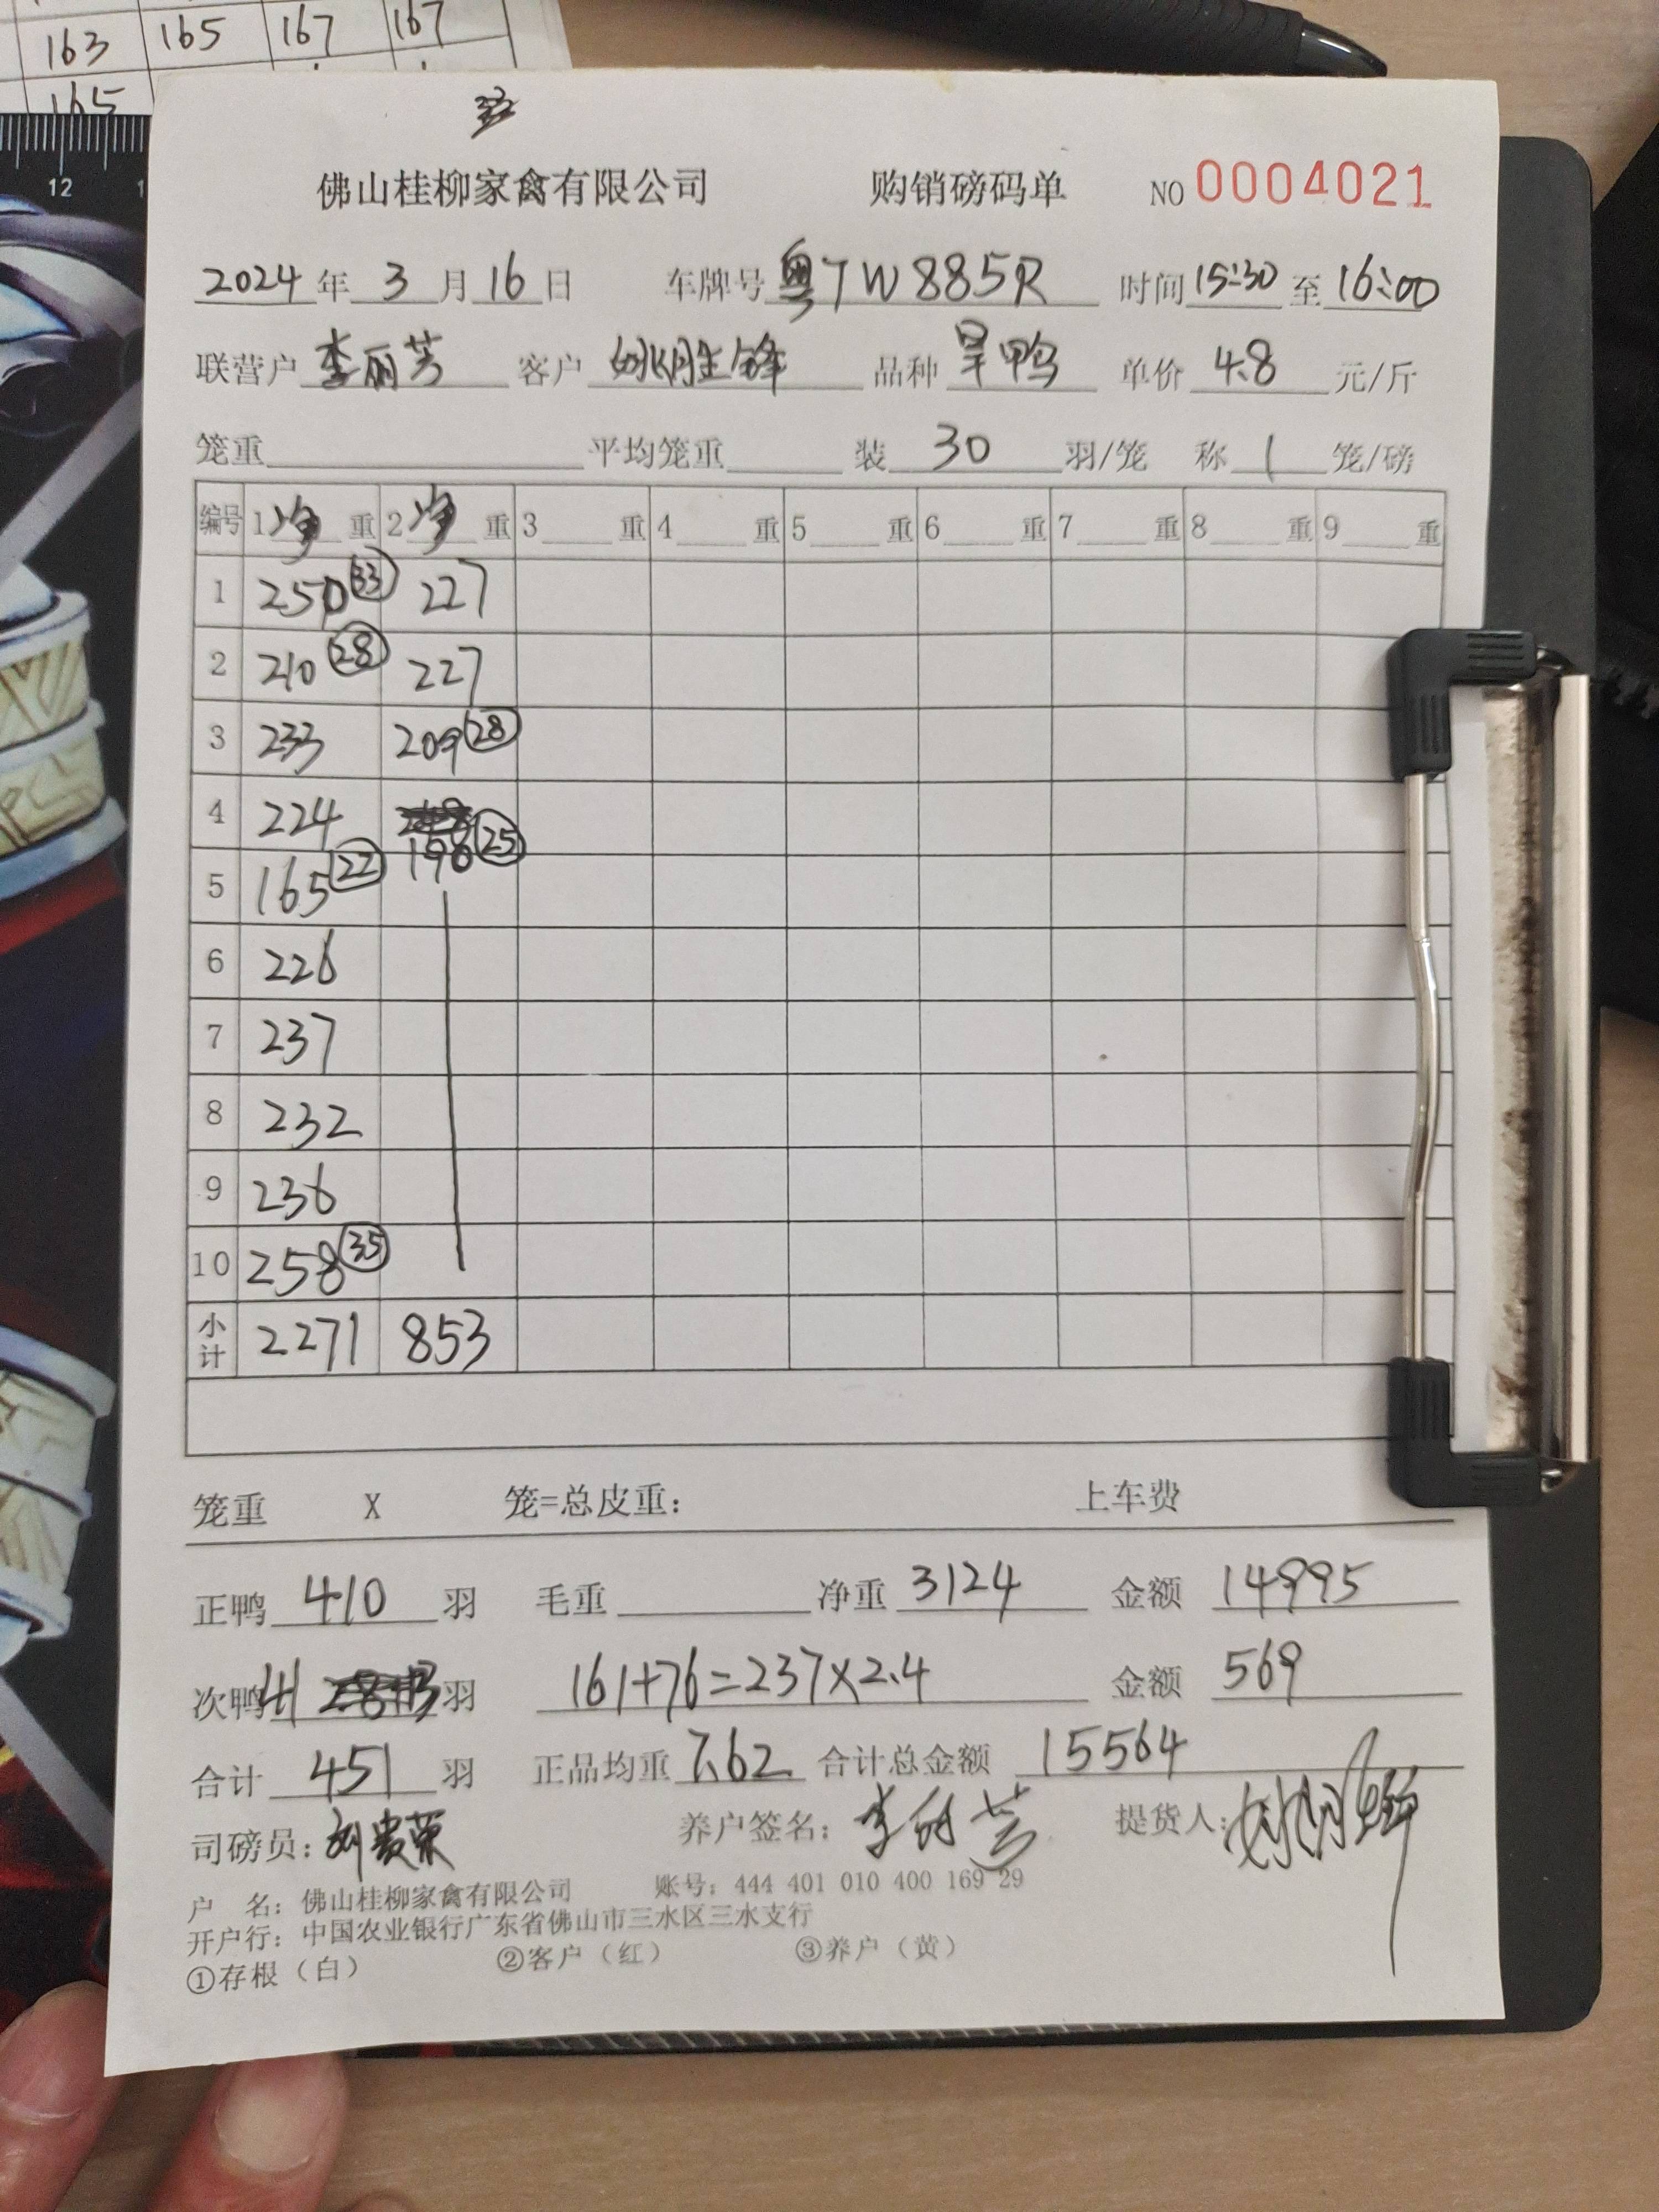 163 165 167 167
165
12
佛山桂柳家禽有限公司 购销磅码单 NO 0004021
2024 年 3 月 16 日 车牌号 粤TW885R 时间 15:30 至 16:00
联营户 李丽芳 客户 姚胜锋 品种 旱鸭 单价 4.8 元/斤
笼重 平均笼重 装 30 羽/笼 称 1 笼/磅
编号 1 净 重 2 净 重 3 重 4 重 5 重 6 重 7 重 8 重 9 重
1 250 33 227
2 210 28 227
3 233 209 28
4 224 190 25
5 165 22
6 226
7 237
8 232
9 236
10 258 35
小计 2271 853
笼重 X 笼=总皮重: 上车费
正鸭 410 羽 毛重 净重 3124 金额 14995
次鸭 41 羽 161+76=237×2.4 金额 569
合计 451 羽 正品均重 7.62 合计总金额 15564
司磅员: 刘贵荣 养户签名: 李丽芳 提货人:
户 名: 佛山桂柳家禽有限公司 账号: 444 401 010 400 169 29
开户行: 中国农业银行广东省佛山市三水区三水支行
①存根（白） ②客户（红） ③养户（黄）